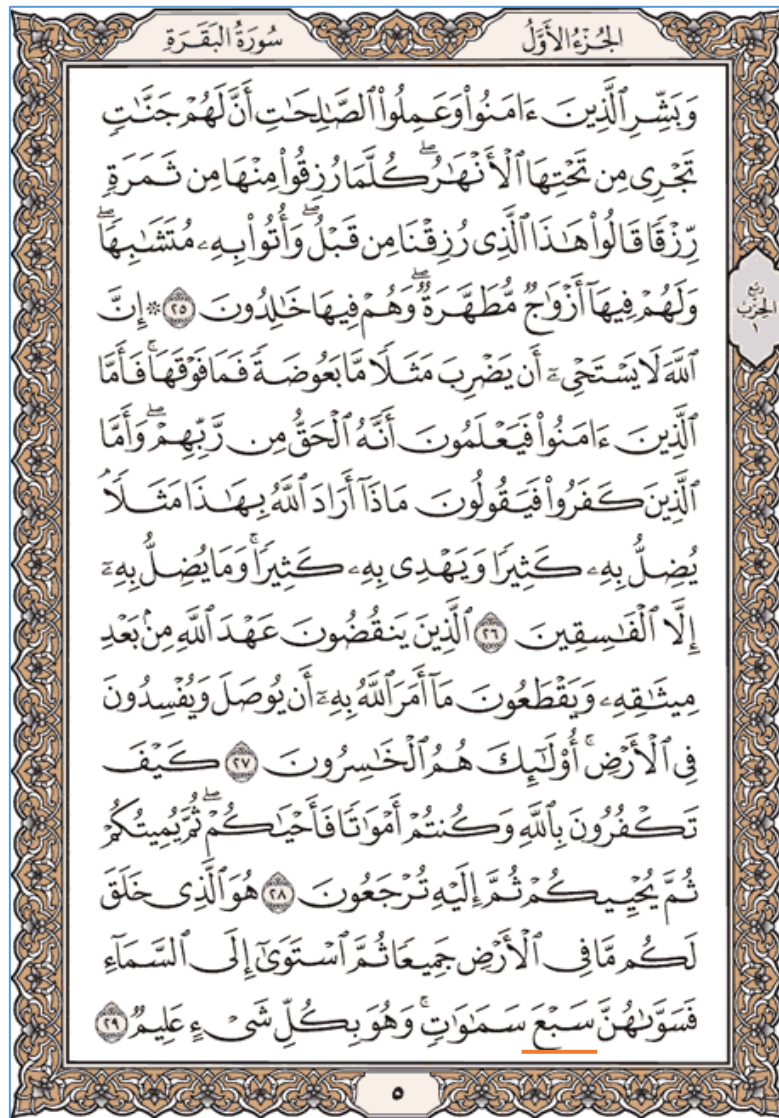 الجُزْءُ الأَوَّلُ
سُورَةُ البَقَرَةِ
وَبَشِّرِ ٱلَّذِينَ ءَامَنُواْ وَعَمِلُواْ ٱلصَّٰلِحَٰتِ أَنَّ لَهُمۡ جَنَّٰتٖ
تَجۡرِي مِن تَحۡتِهَا ٱلۡأَنۡهَٰرُۖ كُلَّمَا رُزِقُواْ مِنۡهَا مِن ثَمَرَةٖ
رِّزۡقٗا قَالُواْ هَٰذَا ٱلَّذِي رُزِقۡنَا مِن قَبۡلُۖ وَأُتُواْ بِهِۦ مُتَشَٰبِهٗاۖ
وَلَهُمۡ فِيهَآ أَزۡوَٰجٞ مُّطَهَّرَةٞۖ وَهُمۡ فِيهَا خَٰلِدُونَ ٢٥ ۞ إِنَّ
ٱللَّهَ لَا يَسۡتَحۡيِۦٓ أَن يَضۡرِبَ مَثَلٗا مَّا بَعُوضَةٗ فَمَا فَوۡقَهَاۚ فَأَمَّا
ٱلَّذِينَ ءَامَنُواْ فَيَعۡلَمُونَ أَنَّهُ ٱلۡحَقُّ مِن رَّبِّهِمۡۖ وَأَمَّا
ٱلَّذِينَ كَفَرُواْ فَيَقُولُونَ مَاذَآ أَرَادَ ٱللَّهُ بِهَٰذَا مَثَلٗاۘ
يُضِلُّ بِهِۦ كَثِيرٗا وَيَهۡدِي بِهِۦ كَثِيرٗاۚ وَمَا يُضِلُّ بِهِۦٓ
إِلَّا ٱلۡفَٰسِقِينَ ٢٦ ٱلَّذِينَ يَنقُضُونَ عَهۡدَ ٱللَّهِ مِنۢ بَعۡدِ
مِيثَٰقِهِۦ وَيَقۡطَعُونَ مَآ أَمَرَ ٱللَّهُ بِهِۦٓ أَن يُوصَلَ وَيُفۡسِدُونَ
فِي ٱلۡأَرۡضِۚ أُوْلَٰٓئِكَ هُمُ ٱلۡخَٰسِرُونَ ٢٧ كَيۡفَ
تَكۡفُرُونَ بِٱللَّهِ وَكُنتُمۡ أَمۡوَٰتٗا فَأَحۡيَٰكُمۡۖ ثُمَّ يُمِيتُكُمۡ
ثُمَّ يُحۡيِيكُمۡ ثُمَّ إِلَيۡهِ تُرۡجَعُونَ ٢٨ هُوَ ٱلَّذِي خَلَقَ
لَكُم مَّا فِي ٱلۡأَرۡضِ جَمِيعٗا ثُمَّ ٱسۡتَوَىٰٓ إِلَى ٱلسَّمَآءِ
فَسَوَّىٰهُنَّ سَبۡعَ سَمَٰوَٰتٖۚ وَهُوَ بِكُلِّ شَيۡءٍ عَلِيمٞ ٢٩
ربع
الحزب
١
٥